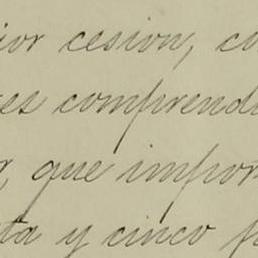 ior cesion, co
es comprendi
, que impor
ta y cinco p